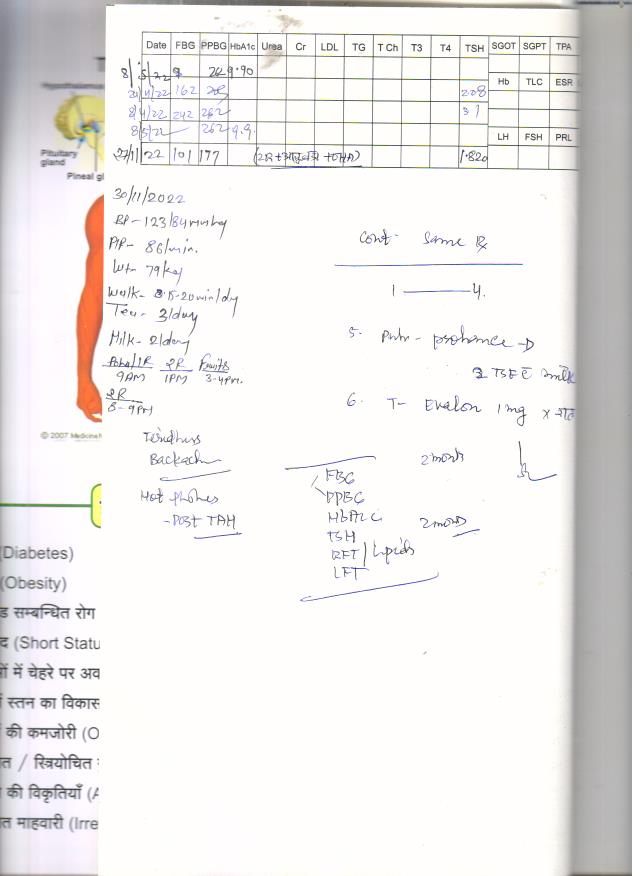 Date FBG PPBG HbA1c Urea Cr LDL TG T Ch T3 T4 TSH SGOT SGPT TPA
9.90
Hb TLC ESR
162
8/4/22 242 262
37
8/5/22 262 9.9
LH FSH PRL
27/11/22 101 177 1.820
Pituitary
gland
Pineal gl
30/11/2022
BP- 123/84 mmhg
P/R- 86/min.
Wt- 79 kg
Walk- 15-20 min/dy
Tea- 3/day
Milk- 2/day
2R Fruits
9AM 1PM 3-4pm.
2R
8-9PM
© 2007
Cont- Same Rx
1 ——— 4.
5. Pwdr- prohance-D
2 TSF c milk
6. T- Evalon 1mg x
Tiredness
Backache
2 months
Hot flushes
- Post TAH
FBG
PPBG
HbA1c
TSH
RFT / Lipids
LFT
2 months
(Diabetes)
(Obesity)
ड सम्बन्धित रोग
द (Short Statu
ों में चेहरे पर अव
स्तन का विकास
की कमजोरी (O
त / स्त्रियोचित
की विकृतियाँ (A
त माहवारी (Irre